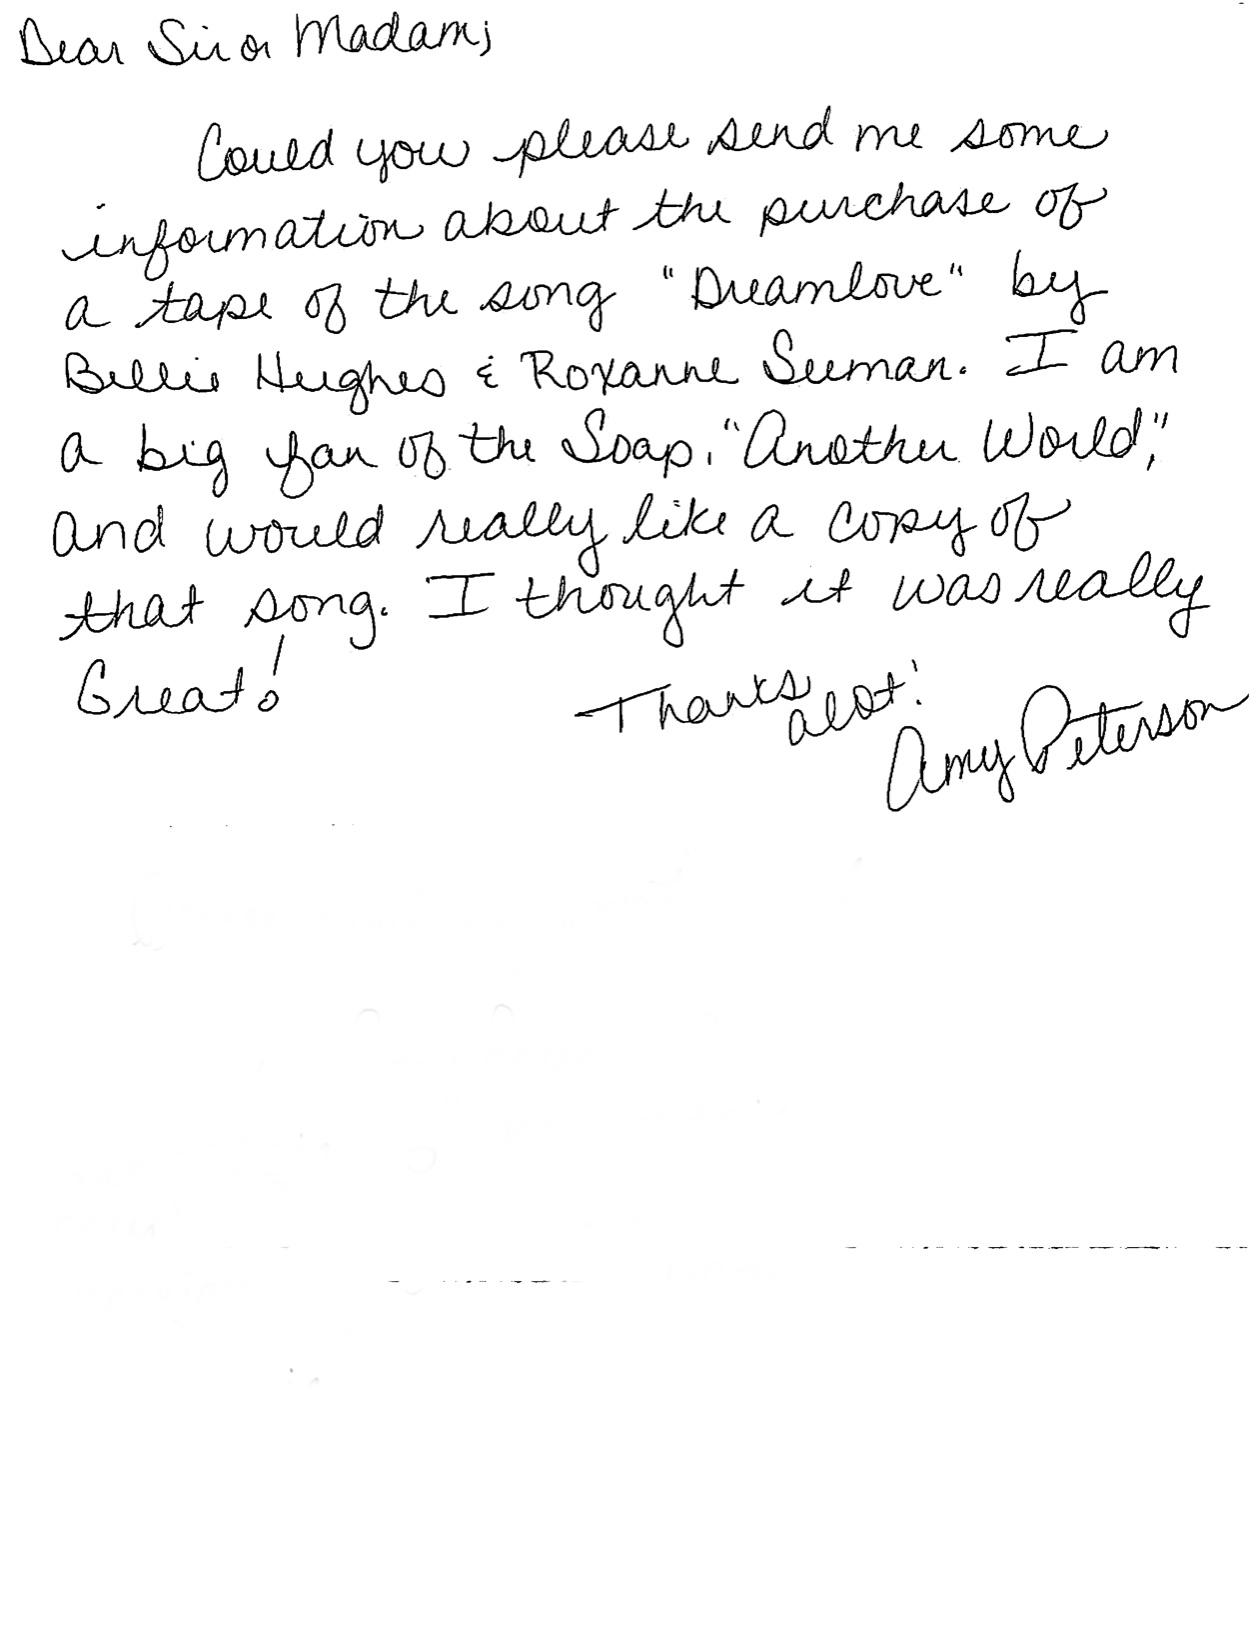 Dear Sir or Madam;
Could you please send me some
information about the purchase of
a tape of the song "Dreamlove" by
Billie Hughes & Roxanne Seeman. I am
a big fan of the Soap, "Another World",
and would really like a copy of
that song. I thought it was really
Great!
Thanks
alot!
Amy Peterson